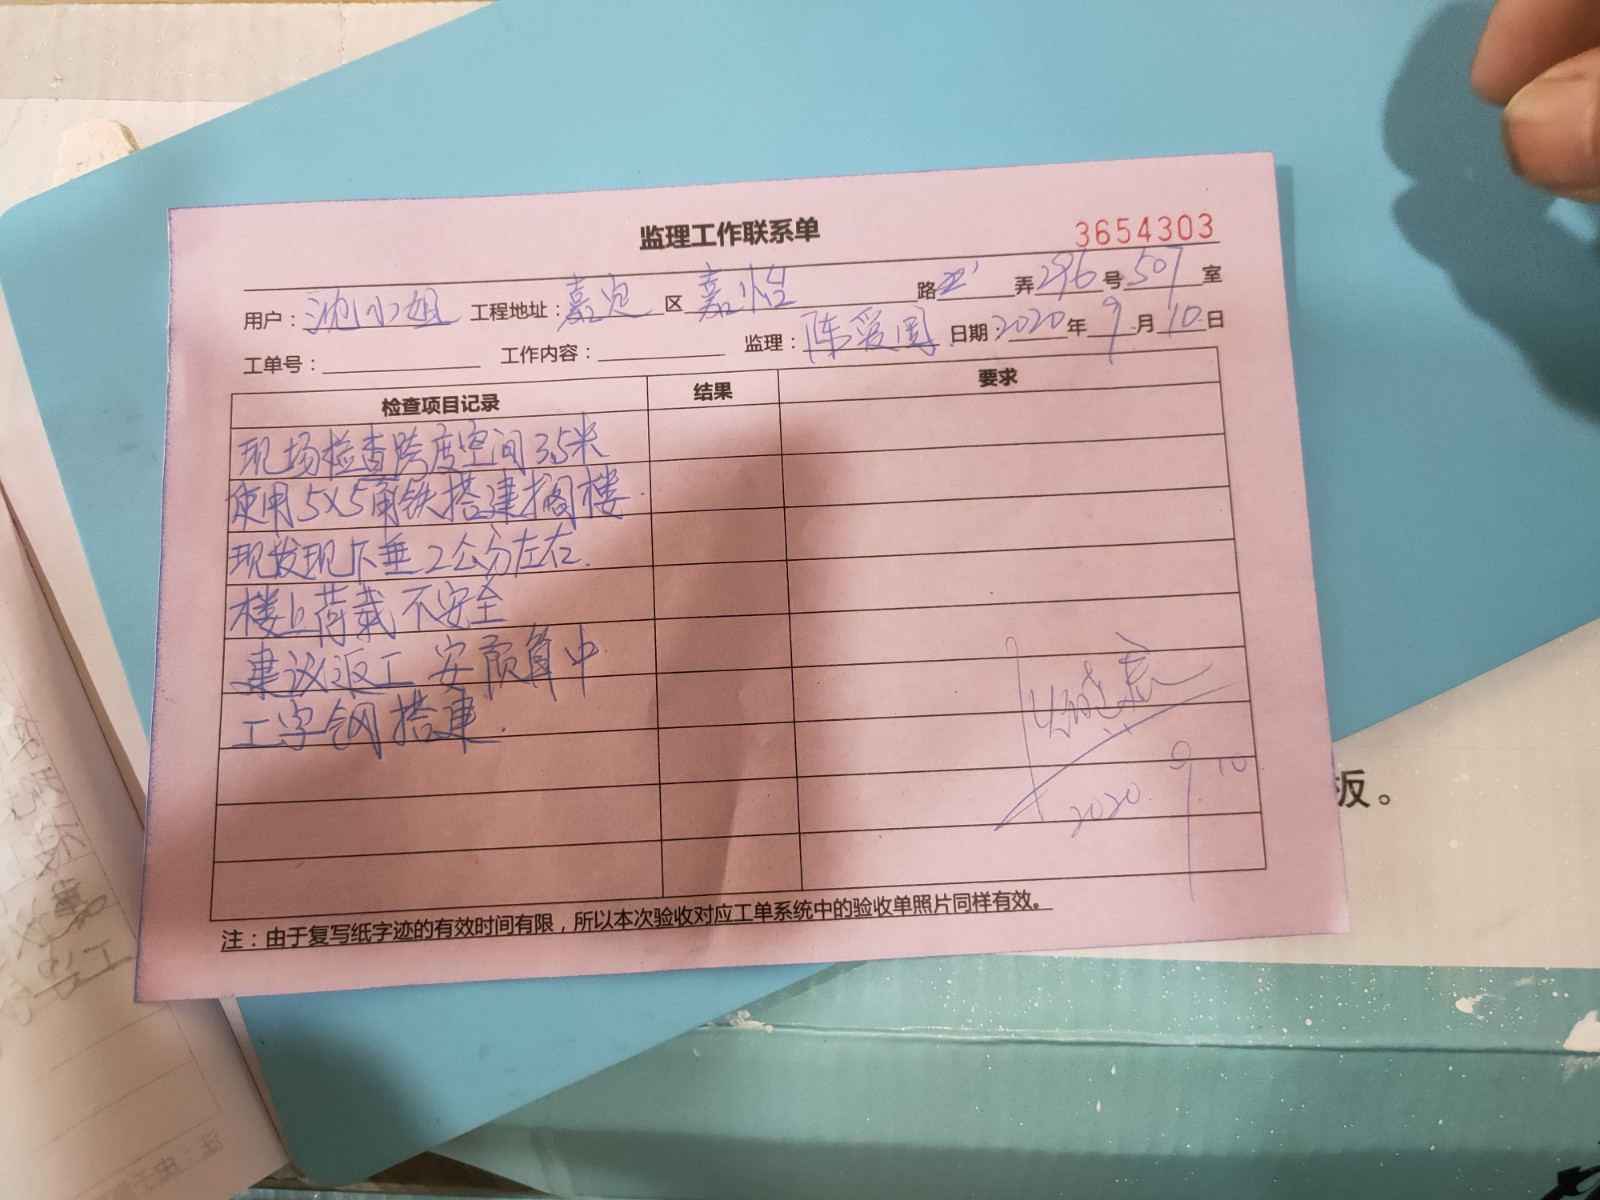 监理工作联系单
3654303
用户：沈小姐 工程地址：嘉定区嘉怡路 弄296号507室
工单号： 工作内容： 监理：陈爱国 日期：2020年9月10日
检查项目记录 结果 要求
现场检查跨度空间3.5米
使用5X5角铁搭建搁楼.
现发现下垂2公分左右.
楼上荷载不安全
建议返工 安预算中
工字钢搭建.
2020. 9 10
注：由于复写纸字迹的有效时间有限，所以本次验收对应工单系统中的验收单照片同样有效。
板。